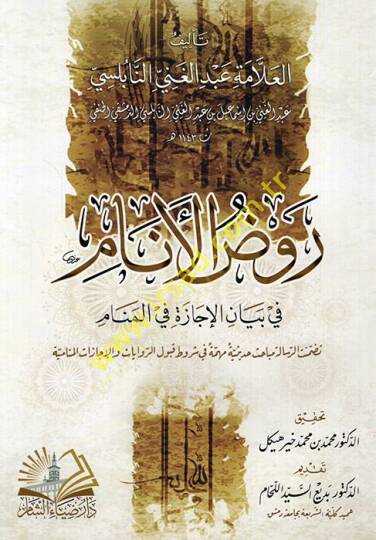 تأليف
العلامة عبد الغني النابلسي
عبد الغني بن إسماعيل بن عبد الغني النابلسي الدمشقي الحنفي
ت ١١٤٣ هـ
روض الأنام
في بيان الإجازة في المنام
تضمنت الرسالة مباحث حديثية مهمة في شروط قبول الروايات والإجازات المنامية
تحقيق
الدكتور محمد بن محمد خير هيكل
تقديم
الدكتور بديع السيد اللحام
عميد كلية الشريعة بجامعة دمشق
الله
دار ضياء الشام